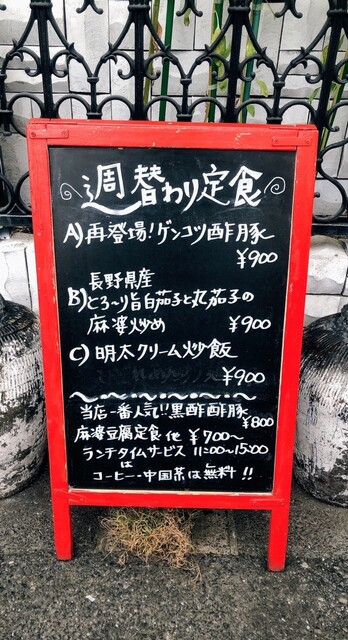 週替わり定食
A)再登場!ゲンコツ酢豚
¥900
長野県産
B)とろ〜り旨白茄子と丸茄子の
麻婆炒め ¥900
C)明太クリーム炒飯
¥900
当店一番人気!!黒酢酢豚
¥800
麻婆豆腐定食 他 ¥700〜
ランチタイムサービス 11:00〜15:00
は
コーヒー・中国茶は無料!!